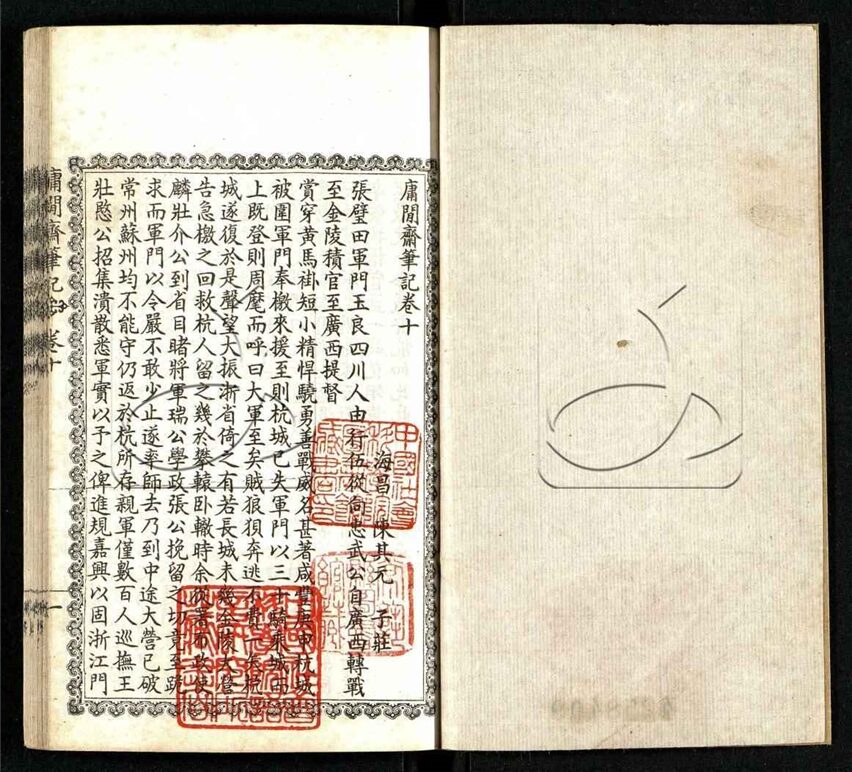 庸閒齋筆記卷十
海昌 陳其元 子莊
張璧田軍門玉良四川人由行伍從向忠武公自廣西轉戰
至金陵積官至廣西提督
賞穿黃馬褂短小精悍驍勇善戰威名甚著咸豐庚申杭城
被圍軍門奉檄來援至則杭城已失軍門以三十騎乘城而
上既登則周麾而呼曰大軍至矣賊狼狽奔逃不費一矢杭
城遂復於是聲望大振浙省倚之有若長城未幾金陵大營
告急檄之回救杭人留之幾於攀轅臥轍時余從署布政使
麟壯介公到省目睹將軍瑞公學政張公挽留之切竟至跪
求而軍門以令嚴不敢少止遂率師去乃到中途大營已破
常州蘇州均不能守仍返於杭所存親軍僅數百人巡撫王
壯愍公招集潰散悉軍實以予之俾進規嘉興以固浙江門
庸閒齋筆記 卷十
一